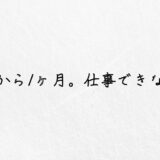 から1ヶ月。仕事でき